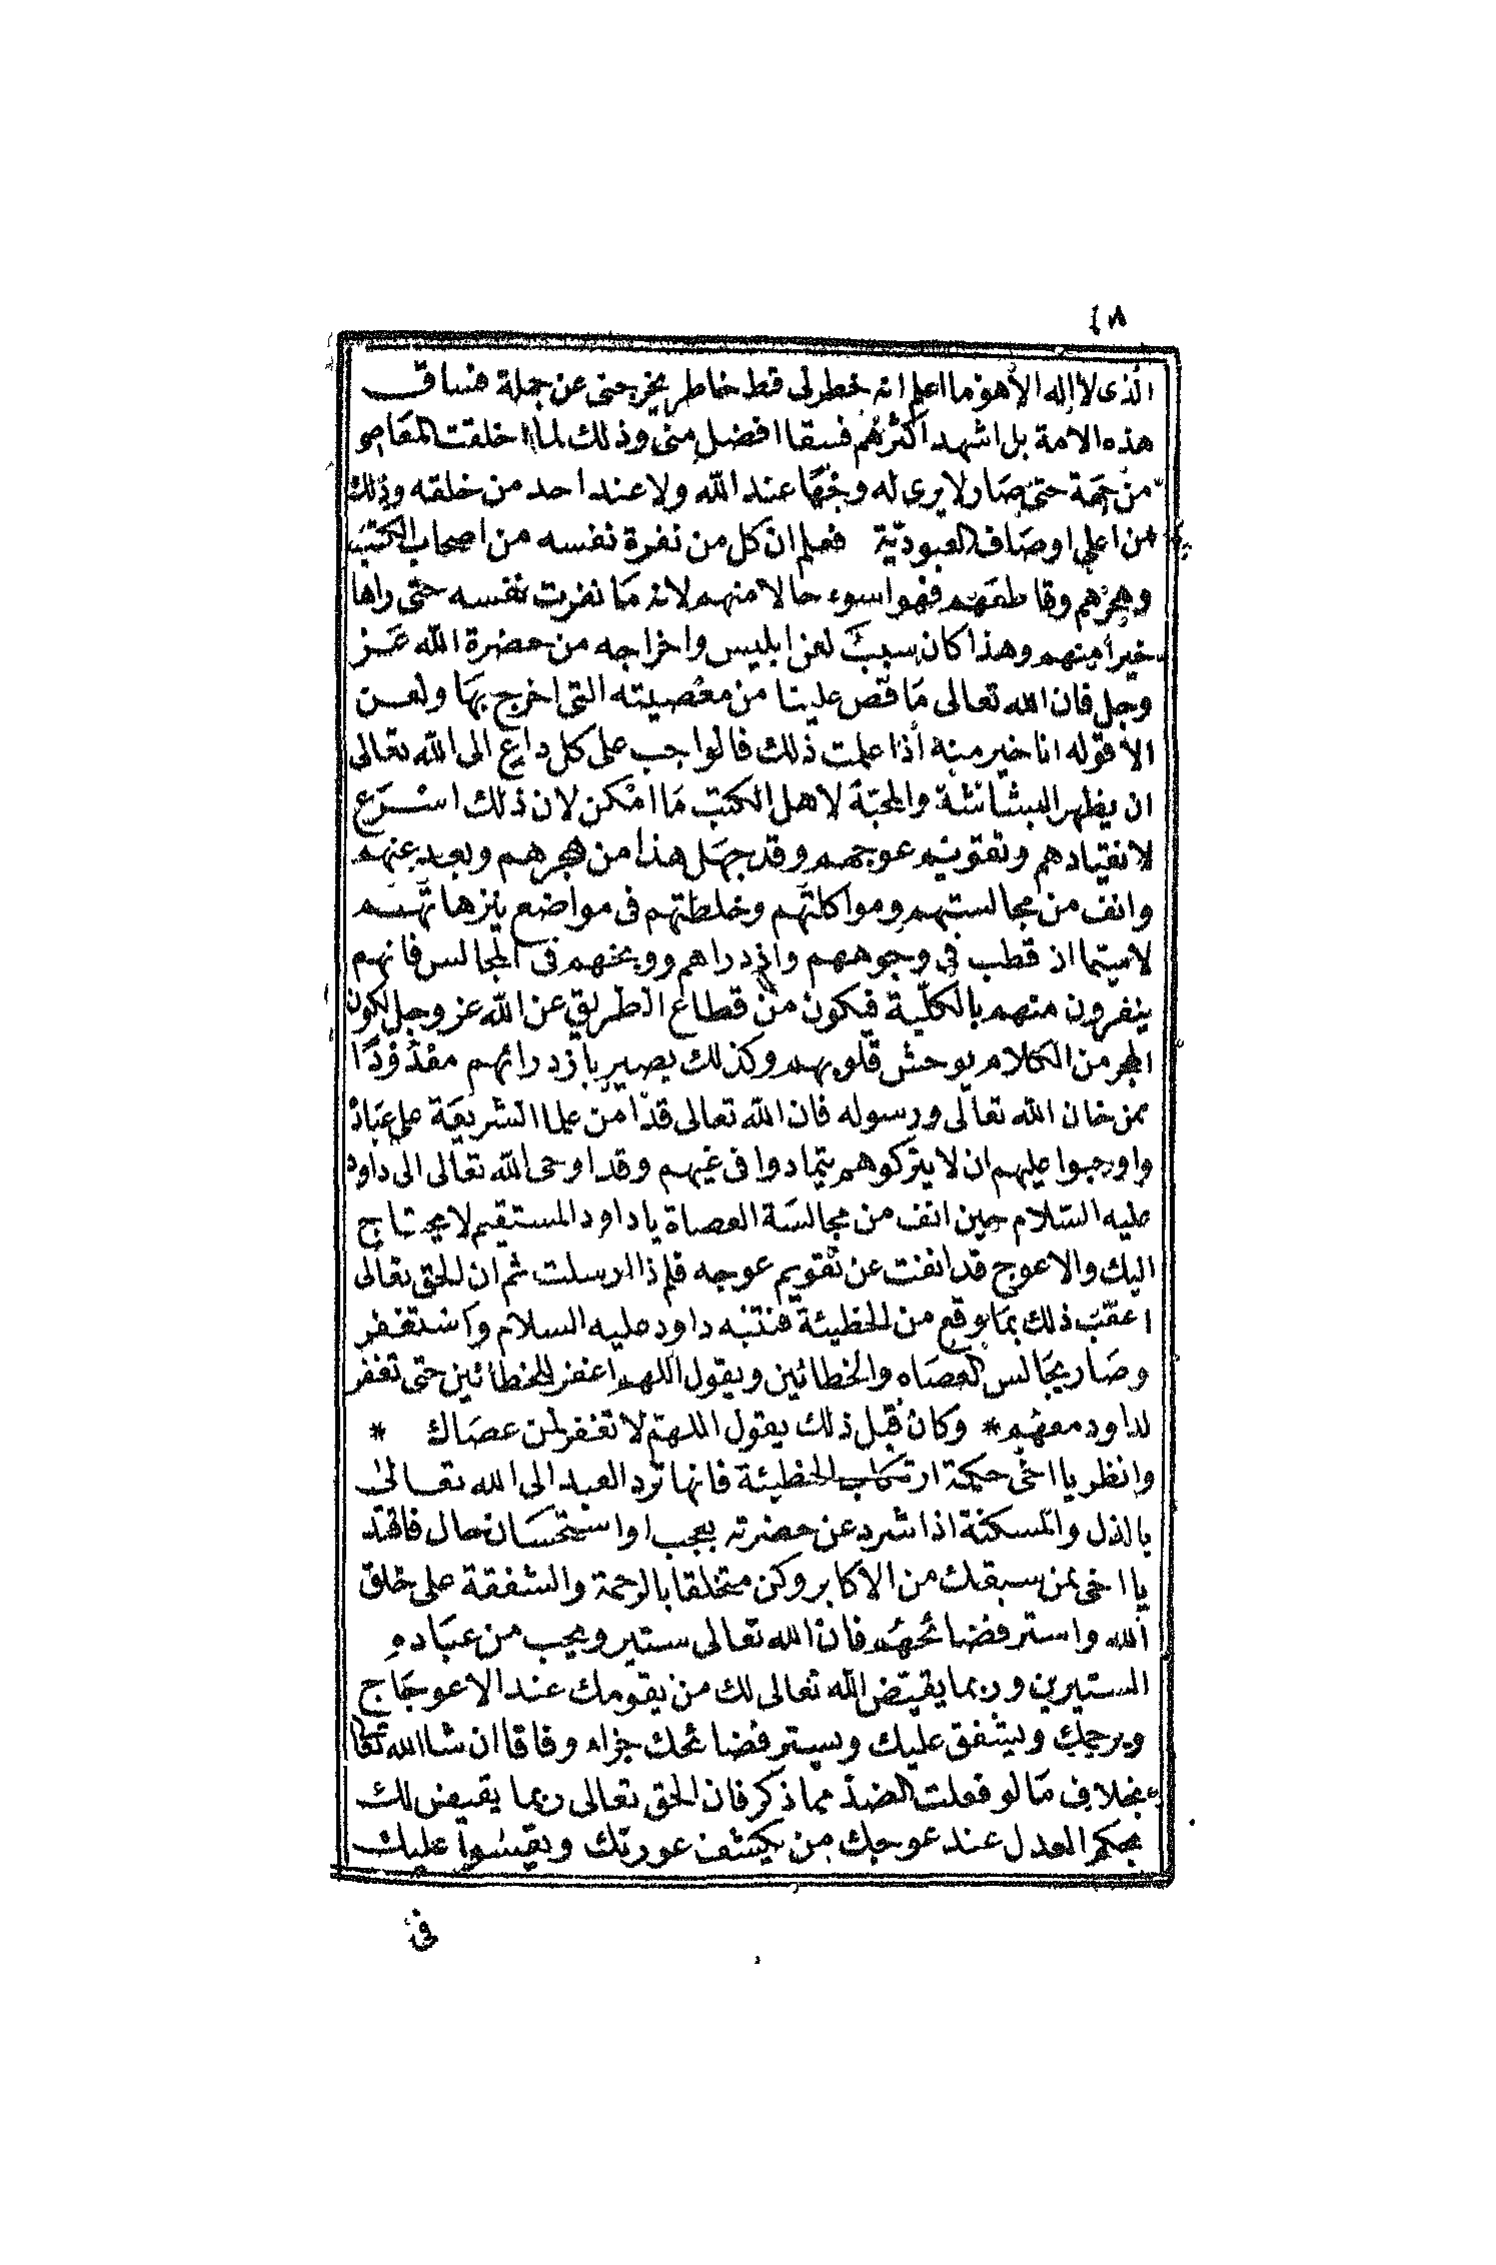 ٤٨
الذى لا اله الا هو ما اعلم انه خطر لى قط خاطر يخرجنى عن جملة فساق
هذه الامة بل اشهد اكثرهم فسقا افضل منى وذلك لما اخلقت المعاصى
من جهة حتى صار لا يرى له وجها عند الله ولا عند احد من خلقه وذلك
من اعلى اوصاف العبودية فعلم ان كل من نفرة نفسه من اصحاب الكتب
وهجرهم وقاطعهم فهو اسوء حالا منهم لانه ما نفرت نفسه حتى راها
خيرا منهم وهذا كان سبب لعن ابليس واخراجه من حضرة الله عز
وجل فان الله تعالى ما قص علينا من معصيته التى اخرج بها ولعن
الا قوله انا خير منه اذا علمت ذلك فالواجب على كل داع الى الله تعالى
ان يظهر البشاشة والمحبة لاهل الكتب ما امكن لان ذلك اسرع
لانقيادهم وتقويم عوجهم وقد جهل هذا من هجرهم وبعد عنهم
وانف من مجالستهم ومواكلتهم وخلطتهم فى مواضع ينزها تهم
لاسيما ان قطب فى وجوههم وازدراهم ووبخهم فى المجالس فانهم
ينفرون منهم بالكلية فيكون من قطاع الطريق عن الله عز وجل لكون
الهجر من الكلام يوحش قلوبهم وكذلك يصير بازدرائهم معدودا
ممن خان الله تعالى ورسوله فان الله تعالى قد امن علما الشريعة على عباد
واوجبوا عليهم ان لا يتركوهم يتمادوا فى غيهم وقد اوحى الله تعالى الى داود
عليه السلام حين انف من مجالسة العصاة يا داود المستقيم لا يحتاج
اليك والاعوج قد انفت عن تقويم عوجه فلم ذا ارسلت ثم ان الحق تعالى
اعقب ذلك بما وقع من الخطيئة فتنبه داود عليه السلام واستغفر
وصار يجالس العصاه والخطائين ويقول اللهم اغفر للخطائين حتى تغفر
لداود معهم * وكان قبل ذلك يقول اللهم لا تغفر لمن عصاك *
وانظر يا اخى حكمة ارتكاب الخطيئة فانها ترد العبد الى الله تعالى
بالذل والمسكنة اذا شرد عن حضرته بعجب او استحسان حال فاقتد
يا اخى بمن سبقك من الاكابر وكن متخلقا بالرحمة والشفقة على خلق
الله واستر فضائحهم فان الله تعالى ستير ويحب من عباده
الستيرين وربما يقيض الله تعالى لك من يقومك عند الاعوجاج
ويرحمك ويشفق عليك ويستر فضائحك جزاء وفاقا ان شا الله تعا
بخلاف ما لو فعلت الضد مما ذكر فان الحق تعالى ربما يقيض لك
بحكم العدل عند عوجك من يكشف عورتك ويقسوا عليك
فى